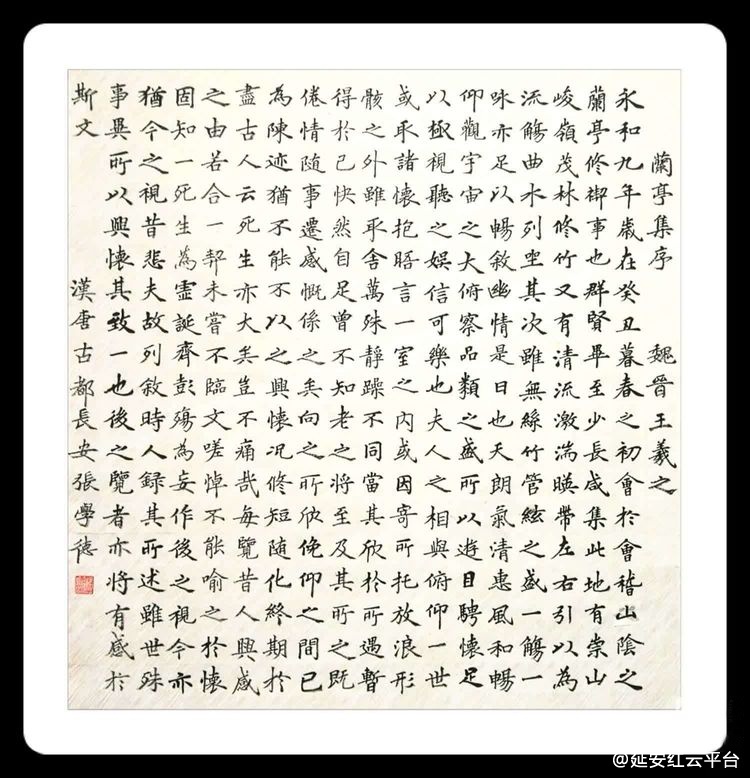 蘭亭集序 魏晉王羲之
永和九年歲在癸丑暮春之初會於會稽山陰之
蘭亭修禊事也群賢畢至少長咸集此地有崇山
峻嶺茂林修竹又有清流激湍暎帶左右引以為
流觴曲水列坐其次雖無絲竹管絃之盛一觴一
咏亦足以暢敘幽情是日也天朗氣清惠風和暢
仰觀宇宙之大俯察品類之盛所以遊目騁懷足
以極視聽之娛信可樂也夫人之相與俯仰一世
或取諸懷抱晤言一室之内或因寄所托放浪形
骸之外雖取舍萬殊靜躁不同當其欣於所遇暫
得於己快然自足曾不知老之將至及其所之既
倦情隨事遷感慨係之矣向之所欣俛仰之間已
為陳迹猶不能不以之興懷况修短隨化終期於
盡古人云死生亦大矣豈不痛哉每覽昔人興感
之由若合一契未嘗不臨文嗟悼不能喻之於懷
固知一死生為虛誕齊彭殤為妄作後之視今亦
猶今之視昔悲夫故列敘時人録其所述雖世殊
事異所以興懷其致一也後之覽者亦將有感於
斯文 漢唐古都長安張學德
@延安红云平台